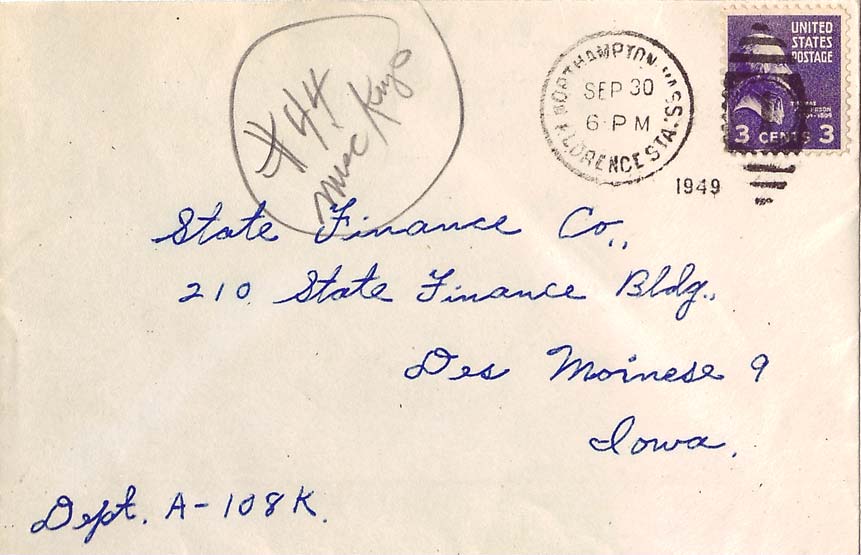 #44
NORTHAMPTON, MASS.
SEP 30
6-PM
FLORENCE STA.
1949
UNITED
STATES
POSTAGE
3 CENTS 3
State Finance Co.,
210 State Finance Bldg.,
Des Moinese 9
Iowa.
Dept. A-108K.